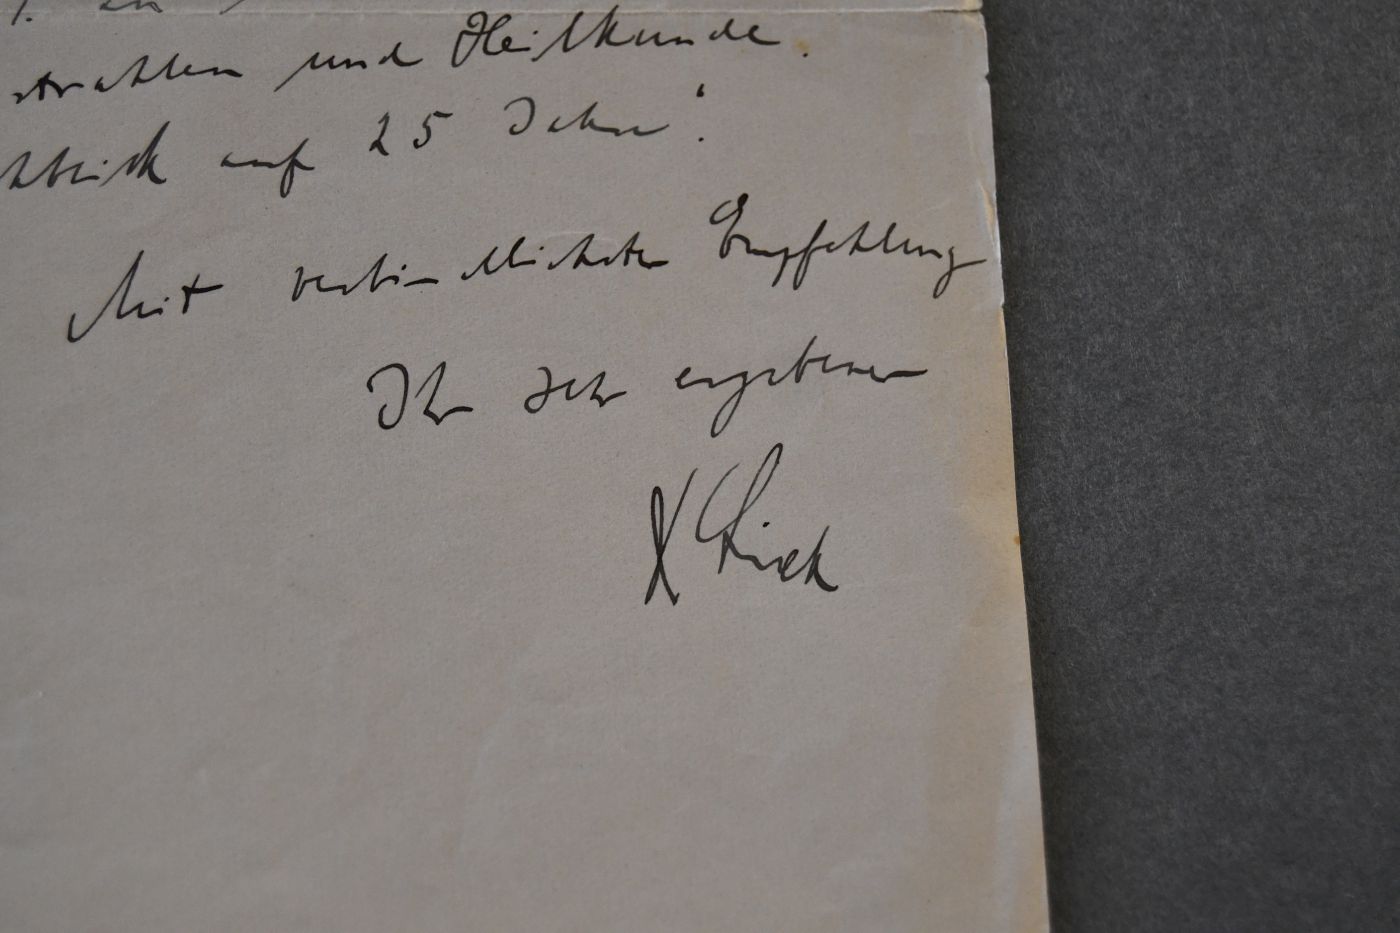 strahlen und Heilkunde.
kblick auf 25 Jahre".
Mit verbindlichster Empfehlung
Ihr sehr ergebener